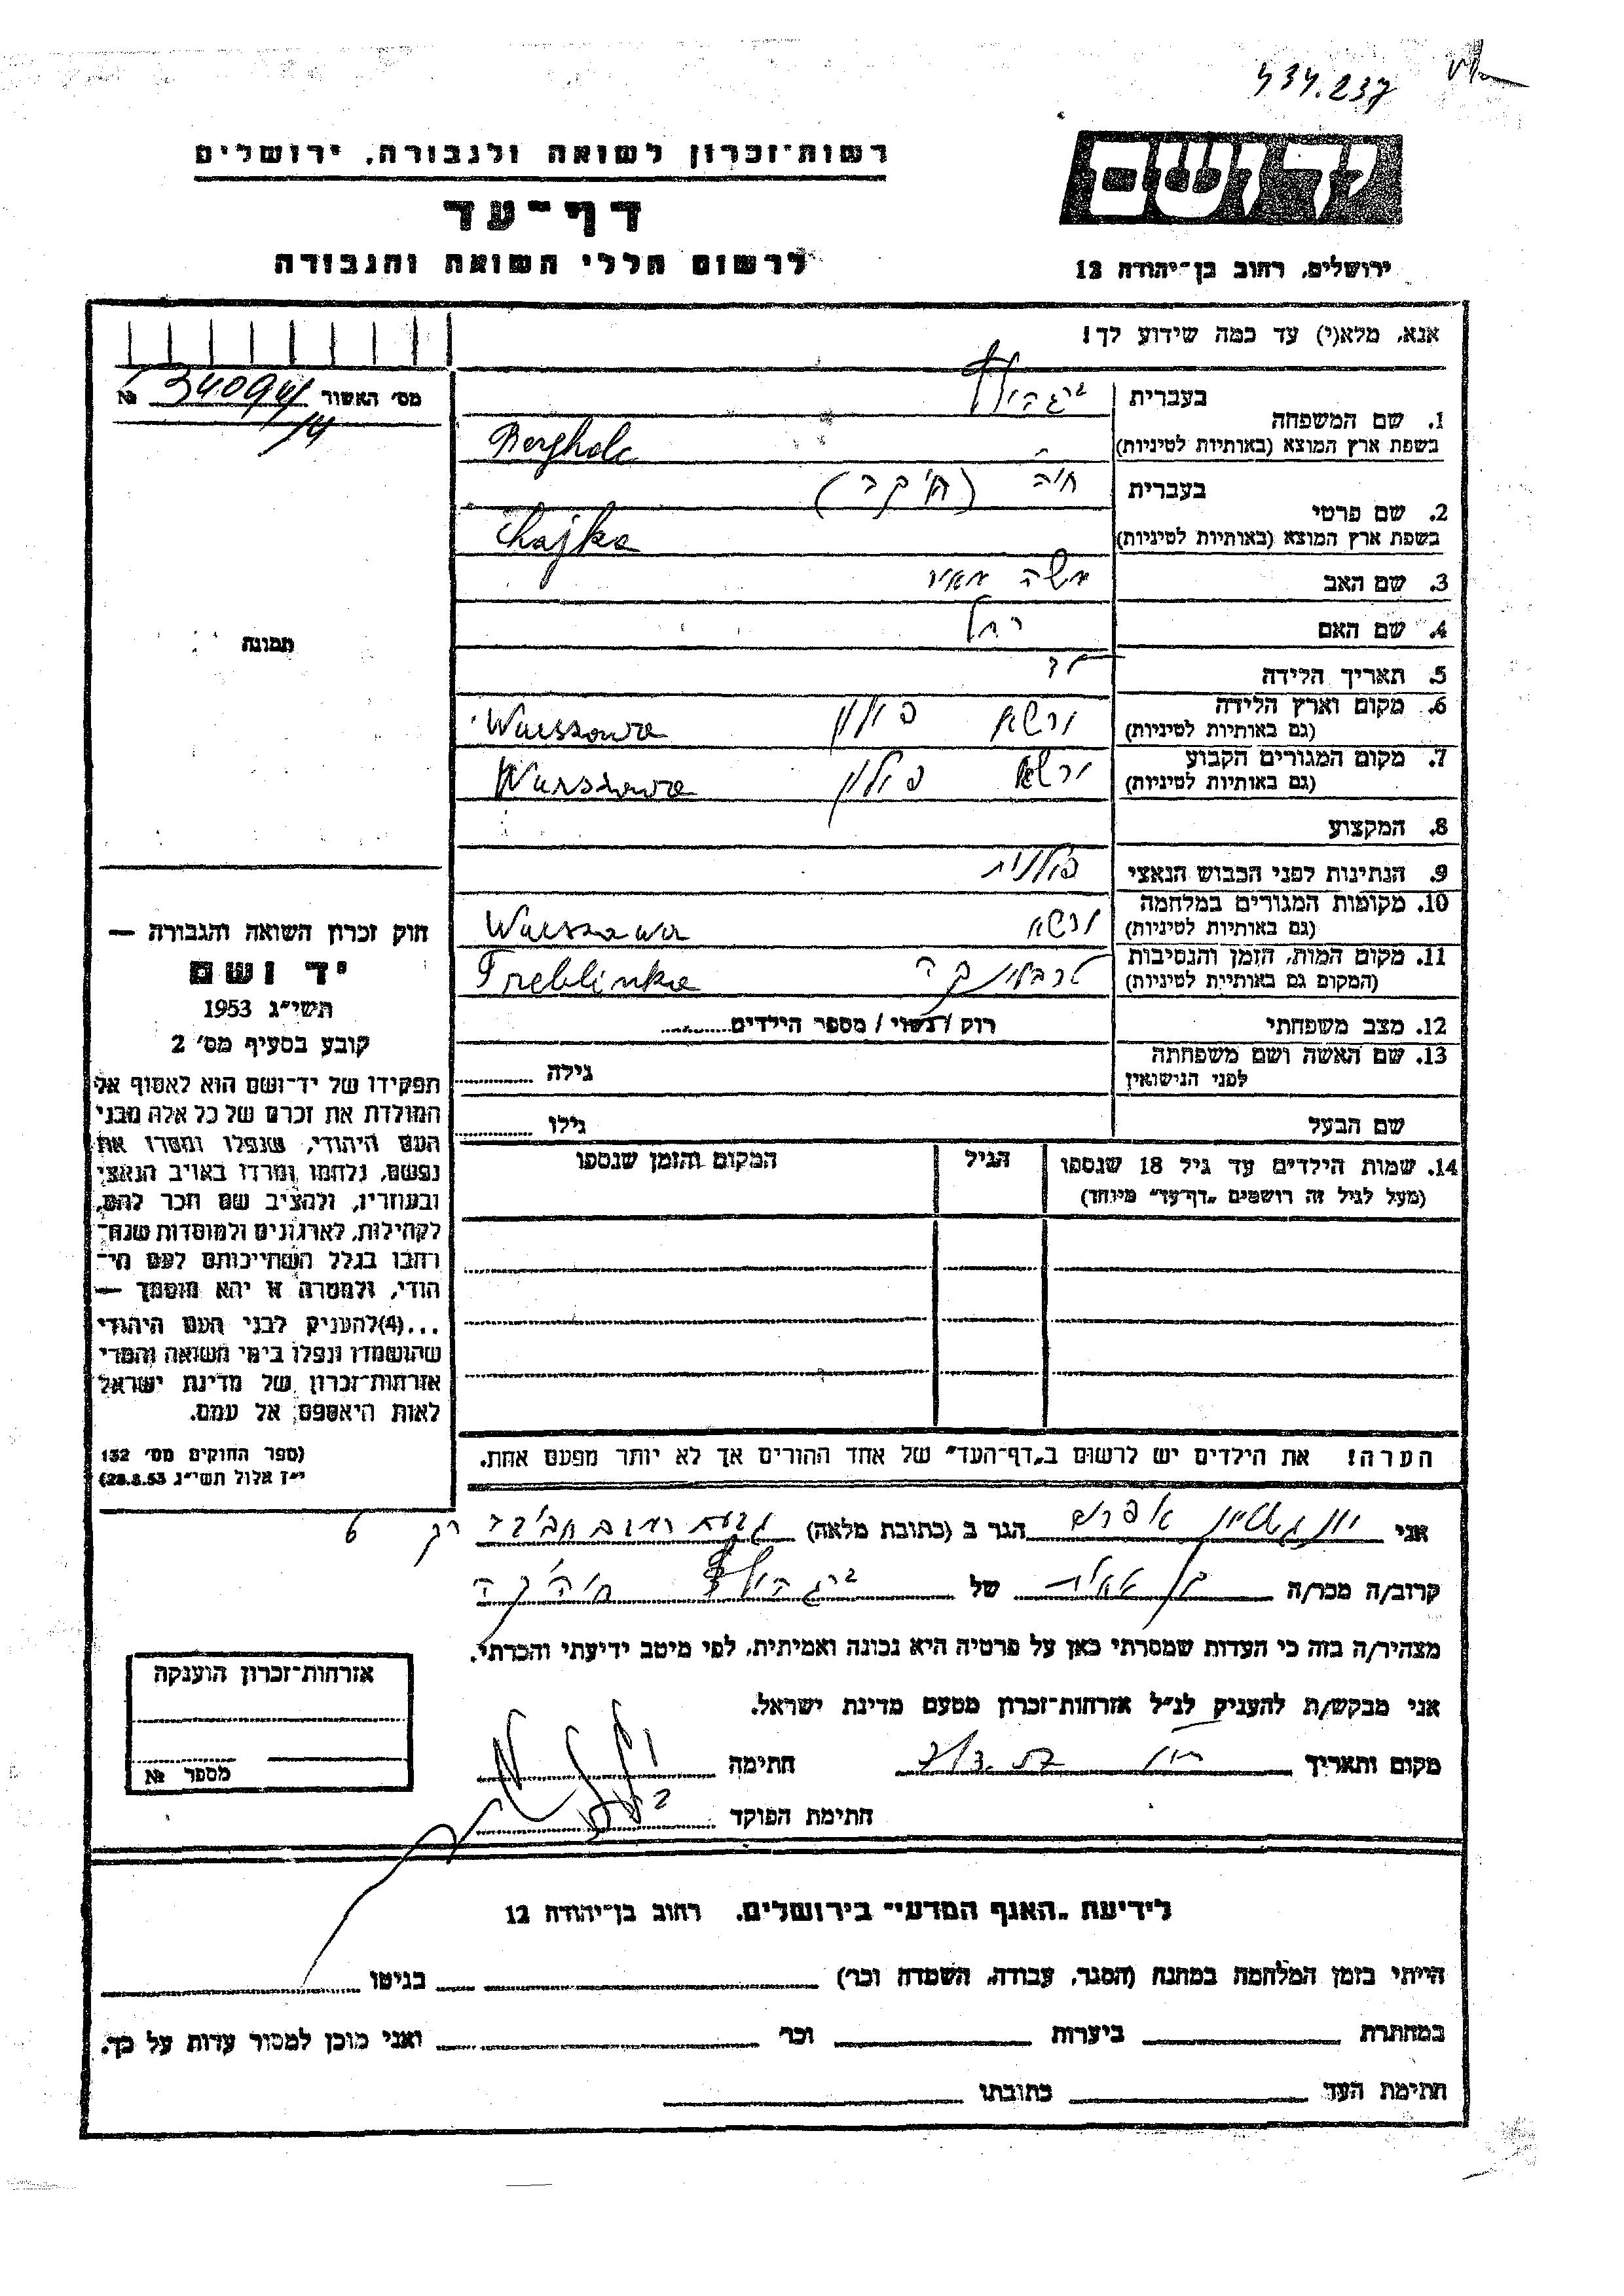 434.237
יד ושם
ירושלים, רחוב בן־יהודה 12
רשות־זכרון לשואה ולגבורה, ירושלים
דף־עד
לרשום חללי השואה והגבורה
אנא, מלא(י) עד כמה שידוע לך!
מס׳ האשור № 
1. שם המשפחה
בעברית
בשפת ארץ המוצא (באותיות לטיניות)
2. שם פרטי
בעברית חיה (חיקה)
בשפת ארץ המוצא (באותיות לטיניות) Chajka
3. שם האב משה מאיר
4. שם האם רחל
5. תאריך הלידה
6. מקום וארץ הלידה ורשא פולין Warszawa
(גם באותיות לטיניות)
7. מקום המגורים הקבוע ורשא פולין Warszawa
(גם באותיות לטיניות)
8. המקצוע
9. הנתינות לפני הכבוש הנאצי פולנית
10. מקומות המגורים במלחמה ורשא Warszawa
(גם באותיות לטיניות)
11. מקום המות, הזמן והנסיבות טרבלינקה Treblinka
(המקום גם באותיות לטיניות)
12. מצב משפחתי רוק / נשוי / מספר הילדים
13. שם האשה ושם משפחתה גילה
לפני הנישואין
שם הבעל גילו
14. שמות הילדים עד גיל 18 שנספו הגיל המקום והזמן שנספו
(מעל לגיל זה רושמים „דף־עד״ מיוחד)
הערה! את הילדים יש לרשום ב„דף־העד״ של אחד ההורים אך לא יותר מפעם אחת.
תמונה
חוק זכרון השואה והגבורה —
יד ושם
תשי״ג 1953
קובע בסעיף מס׳ 2
תפקידו של יד־ושם הוא לאסוף אל
המולדת את זכרם של כל אלה מבני
העם היהודי, שנפלו ומסרו את
נפשם, נלחמו ומרדו באויב הנאצי
ובעוזריו, ולהציב שם וזכר להם,
לקהילות, לארגונים ולמוסדות שנח־
רבו בגלל השתייכותם לעם הי־
הודי, ולמטרה זו יהא מוסמך —
...(4)להעניק לבני העם היהודי
שהושמדו ונפלו בימי השואה והמרי
אזרחות־זכרון של מדינת ישראל
לאות היאספם אל עמם.
(ספר החוקים מס׳ 132
י״ז אלול תשי״ג 28.8.53)
אני אפרים הגר ב (כתובת מלאה)
קרוב/ה מכר/ה של
מצהיר/ה בזה כי העדות שמסרתי כאן על פרטיה היא נכונה ואמיתית, לפי מיטב ידיעתי והכרתי.
אני מבקש/ת להעניק לנ״ל אזרחות־זכרון מטעם מדינת ישראל.
מקום ותאריך חתימה
חתימת הפוקד
אזרחות־זכרון הוענקה
מספר №
לידיעת „האגף המדעי״ בירושלים, רחוב בן־יהודה 12
הייתי בזמן המלחמה במחנה (הסגר, עבודה, השמדה וכו׳) בגיטו
במחתרת ביערות וכו׳ ואני מוכן למסור עדות על כך.
חתימת העד כתובתו